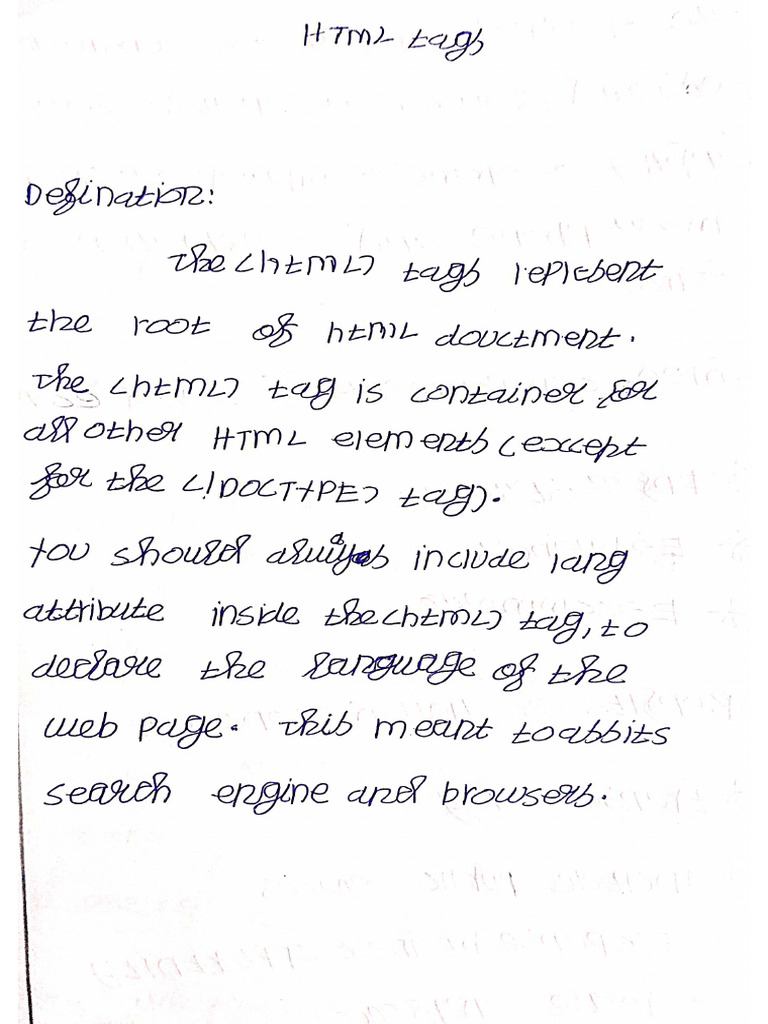 HTML tags
Defination:
The <html> tags represent
the root of html douctment.
The <html> tag is container for
all other HTML elements (except
for the <!DOCTYPE> tag).
You should always include lang
attribute inside the <html> tag, to
declare the language of the
web page. This meant to assits
search engine and browsers.